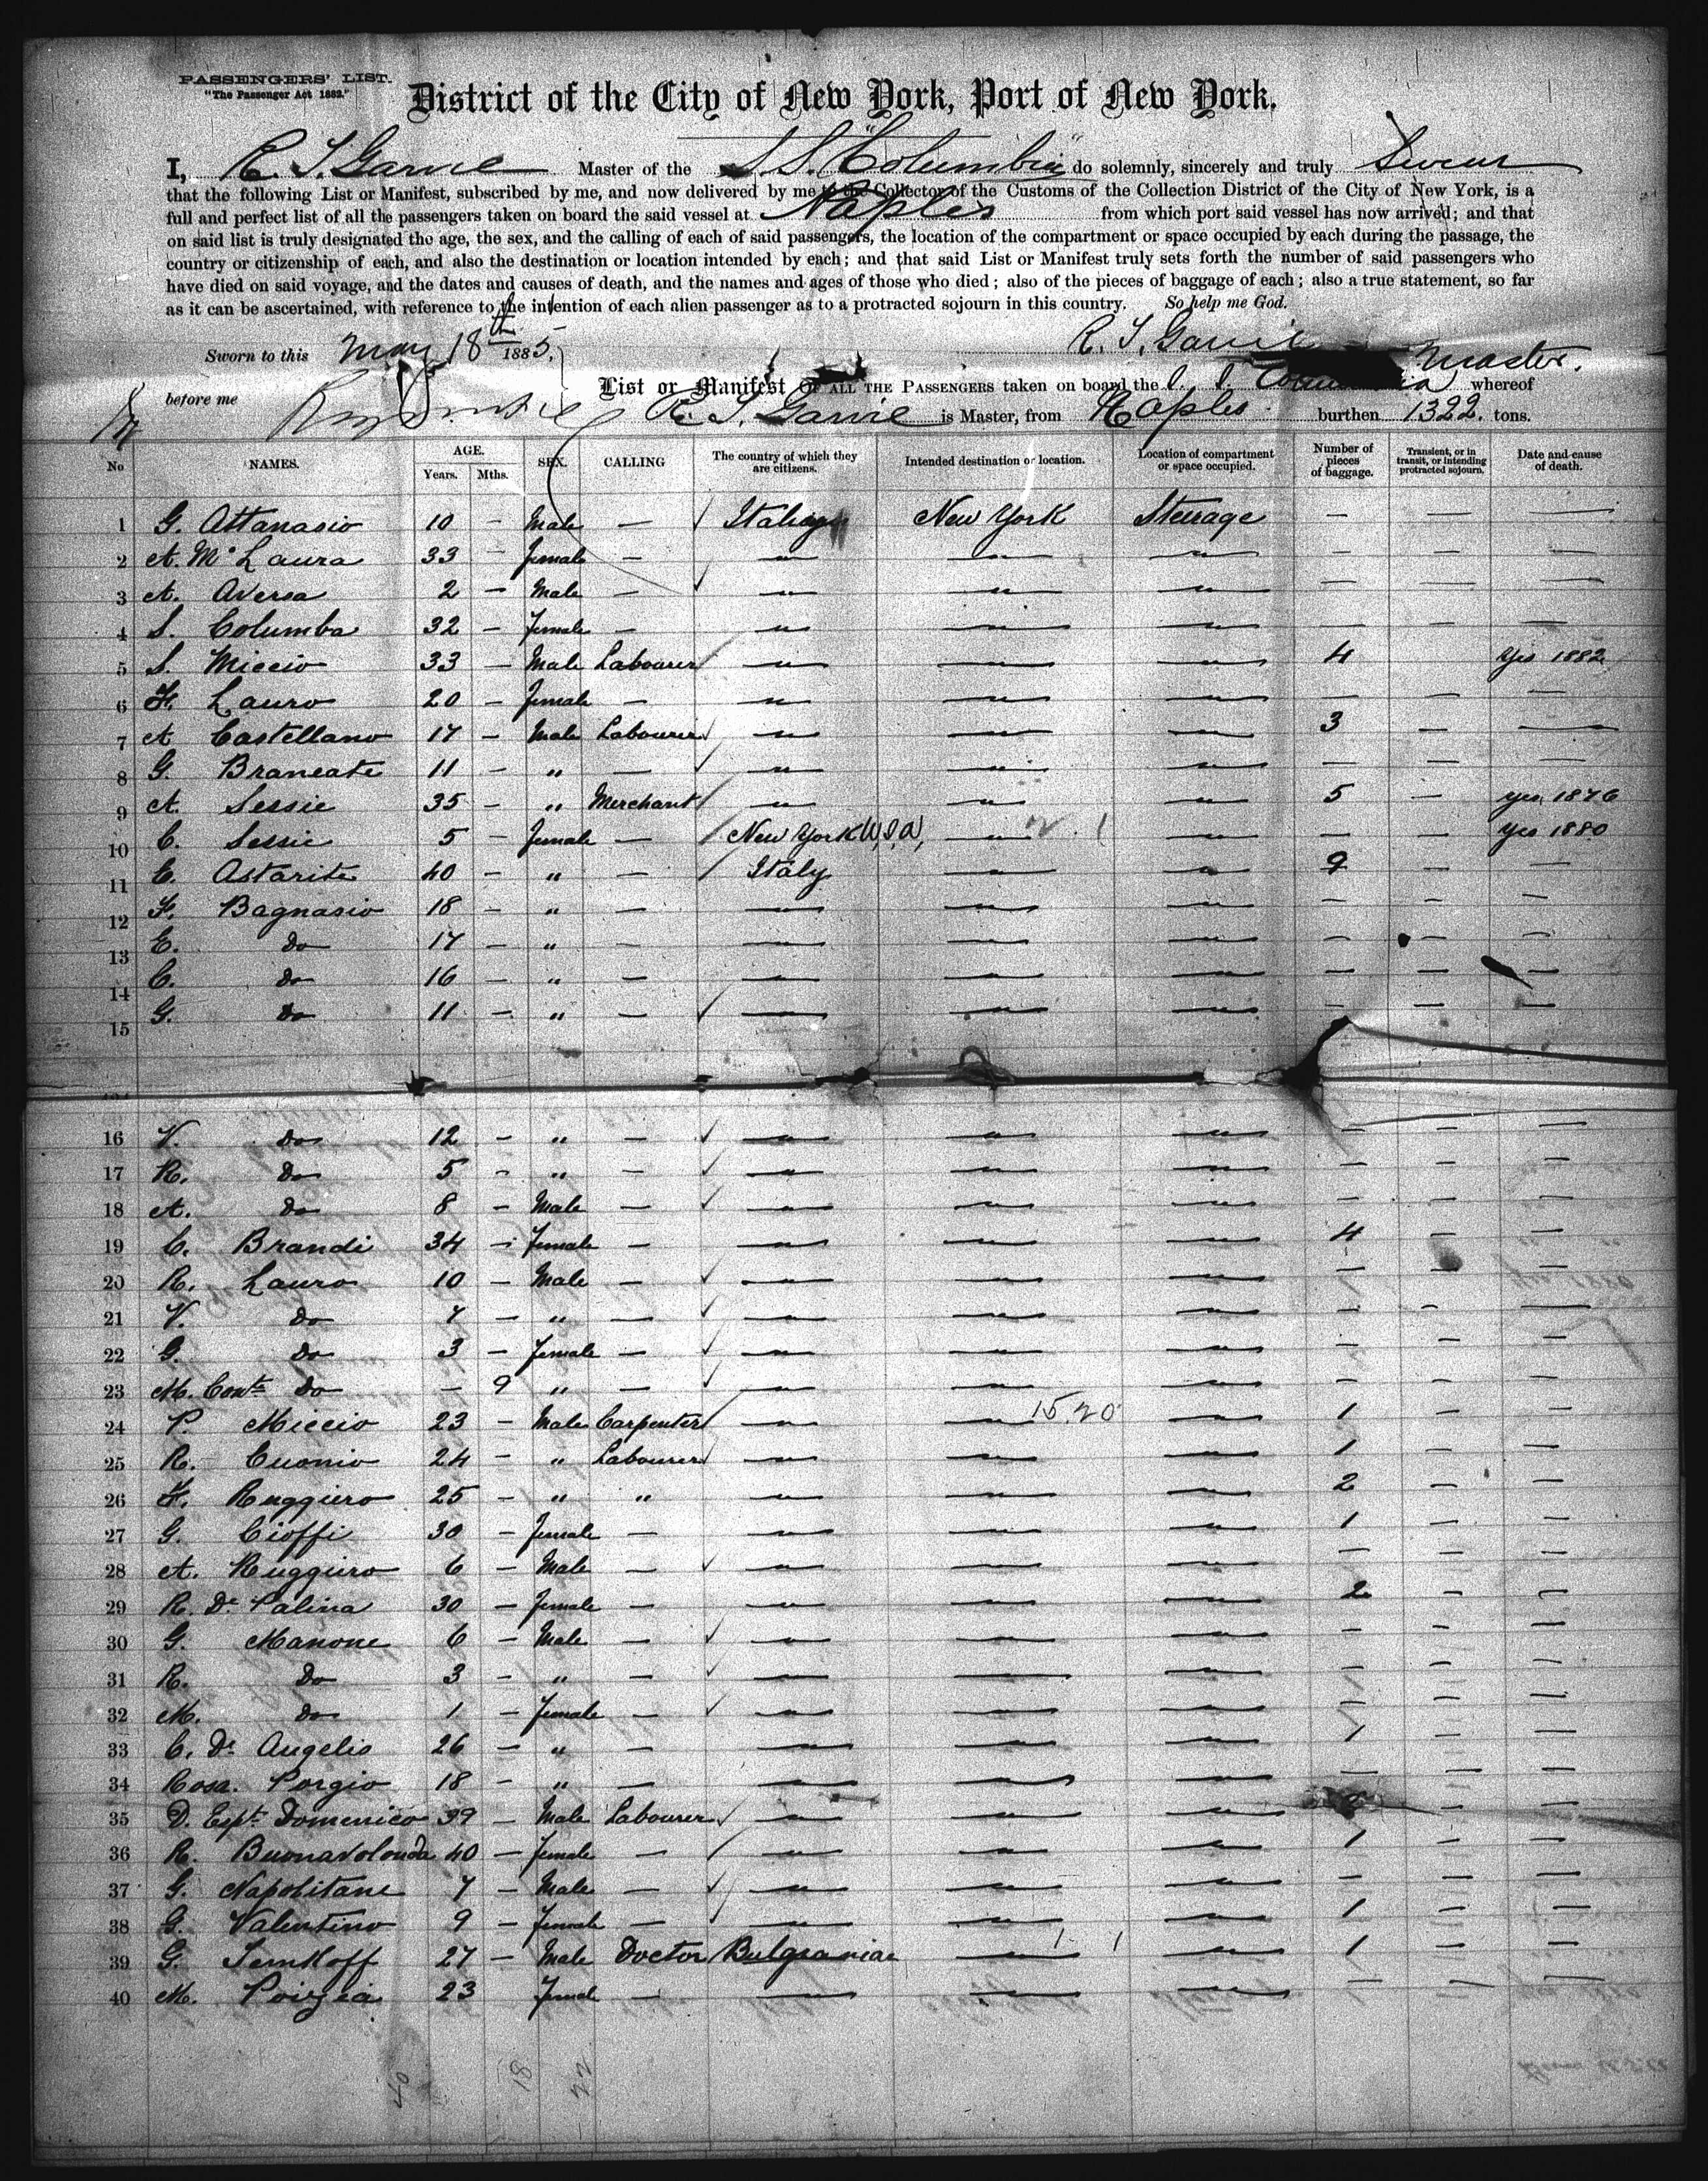 PASSENGERS' LIST.
"The Passenger Act 1882."
District of the City of New York, Port of New York.
I, R. S. Garvie Master of the S.S. "Columbia" do solemnly, sincerely and truly Swear
that the following List or Manifest, subscribed by me, and now delivered by me to the Collector of the Customs of the Collection District of the City of New York, is a
full and perfect list of all the passengers taken on board the said vessel at Naples from which port said vessel has now arrived; and that
on said list is truly designated the age, the sex, and the calling of each of said passengers, the location of the compartment or space occupied by each during the passage, the
country or citizenship of each, and also the destination or location intended by each; and that said List or Manifest truly sets forth the number of said passengers who
have died on said voyage, and the dates and causes of death, and the names and ages of those who died; also of the pieces of baggage of each; also a true statement, so far
as it can be ascertained, with reference to the intention of each alien passenger as to a protracted sojourn in this country. So help me God.
Sworn to this May 18th 1885, R. S. Garvie Master.
before me
List or Manifest OF ALL THE PASSENGERS taken on board the S. S. Columbia whereof
R. S. Garvie is Master, from Naples burthen 1322. tons.
No NAMES. AGE. Years. Mths. SEX. CALLING The country of which they are citizens. Intended destination or location. Location of compartment or space occupied. Number of pieces of baggage. Transient, or in transit, or intending protracted sojourn. Date and cause of death.
1 G. Attanasio 10 - Male - Italian New York Steerage - - -
2 A. Ma Laura 33 - Female - " " " - - -
3 A. Aversa 2 - Male - " " " - - -
4 S. Columba 32 - Female - " " " - - -
5 S. Miccio 33 - Male Labourer " " " 4 - Yes 1882
6 F. Lauro 20 - Female - " " " - - -
7 A. Castellano 17 - Male Labourer " " " 3 - -
8 G. Brancate 11 - " - " " " - - -
9 A. Sessie 35 - " Merchant " " " 5 - yes 1876
10 C. Sessie 5 - Female - New York U,S,A, " " - - Yes 1880
11 C. Astarite 40 - " - Italy " " 9 -
12 F. Bagnasio 18 - " - " " " - - -
13 E. Do 17 - " - " " " - - -
14 C. Do 16 - " - " " " - - -
15 G. Do 11 - " - " " " - - -
16 V. Do 12 - " - " " " - - -
17 R. Do 5 - " - " " " - - -
18 A. Do 8 - Male - " " " - - -
19 C. Brandi 34 - Female - " " " 4 - -
20 R. Lauro 10 - Male - " " " - - -
21 V. Do 7 - " - " " " - - -
22 G. Do 3 - Female - " " " - - -
23 M. Conta Do - 9 " - " " " - - -
24 P. Miccio 23 - Male Carpenter " " 15.20 " 1 - -
25 R. Cuonio 24 - " Labourer " " " 1 - -
26 F. Ruggiero 25 - " " " " " 2 - -
27 G. Cioffi 30 - Female - " " " 1 - -
28 A. Ruggiero 6 - Male - " " " - - -
29 R. De Palina 30 - Female - " " " 2 - -
30 G. Manone 6 - Male - " " " - - -
31 R. Do 3 - " - " " " - - -
32 M. Do 1 - Female - " " " - - -
33 C. De Angelis 26 - " - " " " 1 - -
34 Rosa. Porgio 18 - " - " " " - - -
35 D. Espt Domenico 39 - Male Labourer " " " - -
36 R. Buonavolonda 40 - Female - " " " 1 - -
37 G. Napolitane 7 - Male - " " " - - -
38 G. Valentino 9 - Female - " " " 1 - -
39 G. Semkoff 27 - Male Doctor Bulgarian " " 1 - -
40 M. Poirzia 23 Femal - " " " - - -
40 18 22